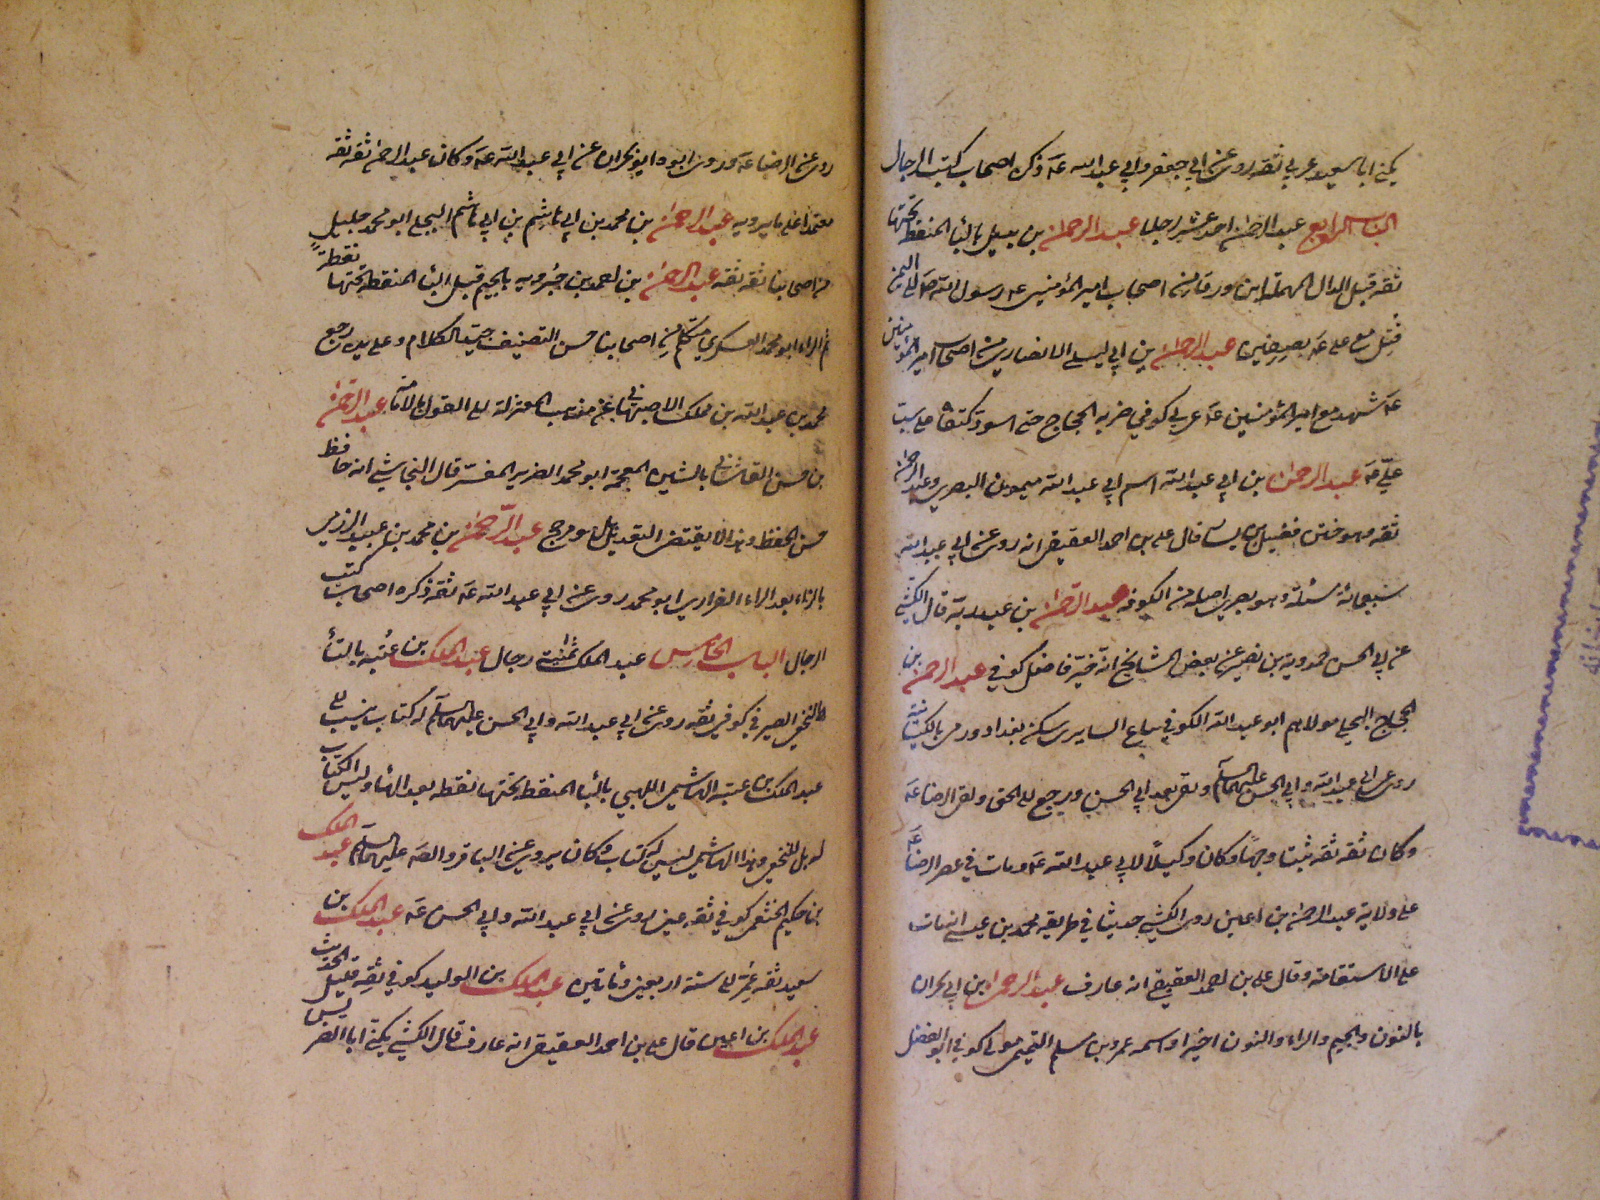 يكنى ابا سعيد عربي ثقه روى عن ابي جعفر وابي عبد الله عه ذكره اصحاب كتب الرجال
الباب الرابع عبد الرحمن احد عشر رجلا عبد الرحمن بن بديل بالياء المنقطه تحتها
ثقه قبل الدال المهملة ابن ورقا من اصحاب امير المؤمنين عه رسول الله ص الى اليمن
قتل مع علي عه بصفين عبد الرحمن بن ابي ليلى الانصاري من اصحاب امير المؤمنين
عه شهد مع امير المؤمنين عه عربي كوفي ضربه الحجاج حتى اسود كتفاه على سبّ
علي عه عبد الرحمن بن ابي عبد الله اسم ابي عبد الله ميمون البصري وعبد الرحمن
ثقه وهو ختن فضيل بن يسار قال علي بن احمد العقيقي انه روى عن ابي عبد الله
سبعمائة مسئلة وهو بصري اصله من الكوفه عبد الرحمن بن عبد ربه قال الكشي
عن ابي الحسن حمدويه بن نصير عن بعض المشايخ انه خيّر فاضل كوفي عبد الرحمن بن
الحجاج البجلي مولاهم ابو عبد الله الكوفي بياع السابري سكن بغداد ورمي بالكيسانية
روى عن ابي عبد الله وابي الحسن عليهما السلم وبقي بعد ابي الحسن ورجع الى الحق ولقى الرضا عه
وكان ثقه ثقه ثبتا وجها وكان وكيلا لابي عبد الله عه ومات في عصر الرضا عه
على ولايته عبد الرحمن بن اعين روى الكشي حديثا في طريقه محمد بن عيسى انه مات
على الاستقامة وقال علي بن احمد العقيقي انه عارف عبد الرحمن بن ابي نجران
بالنون والجيم والراء والنون اخيرا واسمه عمرو بن مسلم التميمي مولى كوفي ابو الفضل
روى عن الرضا عه وروى ابوه ابو نجران عن ابي عبد الله عه وكان عبد الرحمن ثقه ثقه
معتمدا على ما يرويه عبد الرحمن بن محمد بن ابي هاشم بن ابي هاشم البجلي ابو محمد جليل
من اصحابنا ثقه ثقه عبد الرحمن بن احمد بن جبرويه بالجيم قبل الياء المنقطه تحتها نقطة
ثم الراء ابو محمد العسكري متكلم من اصحابنا حسن التصنيف جيد الكلام وعلى يده رجع
محمد بن عبد الله بن مملك الاصبهاني عن مذهب المعتزلة الى القول بالامامة عبد الرحمن
بن حسن القاشاني بالشين المعجمه ابو محمد الضرير المفسر قال النجاشي انه حافظ
حسن الحفظ وهذا لا يقتضي التعديل بل هو مرجح عبد الرحمن بن محمد بن عبيد الرزمي
بالزاء بعد الراء الفزاري ابو محمد روى عن ابي عبد الله عه ثقه ذكره اصحاب كتب
الرجال الباب الخامس عبد الملك ثمانية رجال عبد الملك بن عتبه بالتاء
النخعي الصيرفي كوفي ثقه روى عن ابي عبد الله وابي الحسن عليهما السلم له كتاب ينسب الى
عبد الملك بن عتبة الهاشمي اللهبي بالياء المنقطه تحتها نقطه بعد الهاء وليس الكتاب
له بل للنخعي وهذا الهاشمي ليس له كتاب وكان يروي عن الباقر والصه عليهما السلم عبد الملك
بن حكيم الخثعمي كوفي ثقه عين روى عن ابي عبد الله وابي الحسن عه عبد الملك بن
سعيد ثقه عمر الى سنة اربعين ومأتين عبد الملك بن الوليد كوفي ثقه قليل الحديث
عبد الملك بن اعين قال علي بن احمد العقيقي انه عارف قال الكشي يكنى ابا الضريس